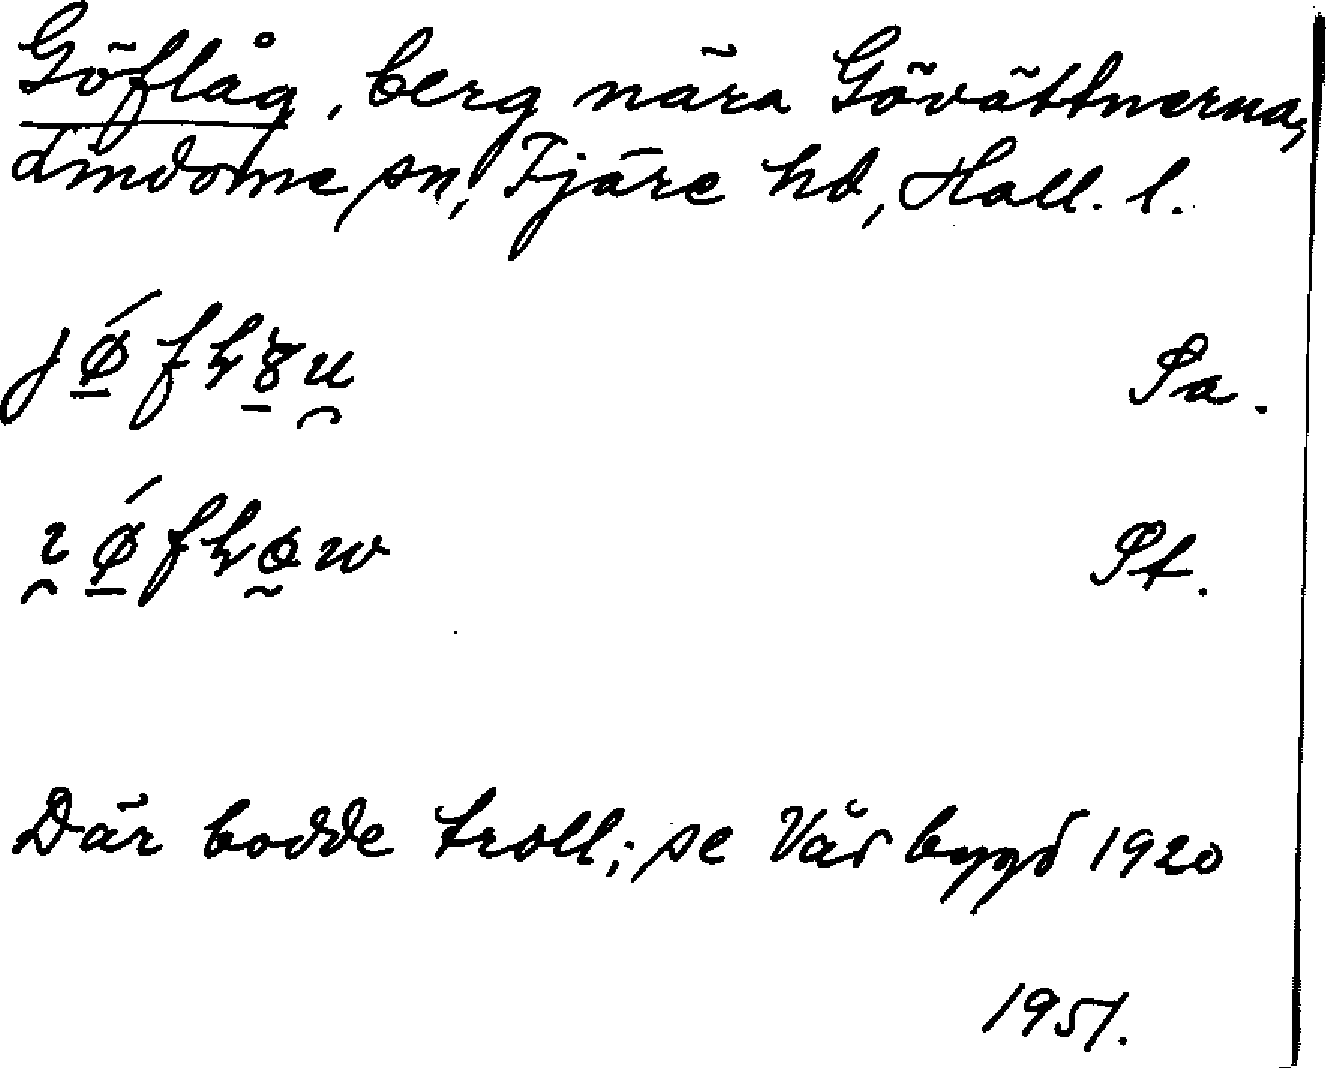 Göflåg, berg nära Gövättnerna,
Lindome sn, Fjäre hd, Hall. l.
Pa.
Pt.
Där bodde troll; se Vår bygd 1920
1951.